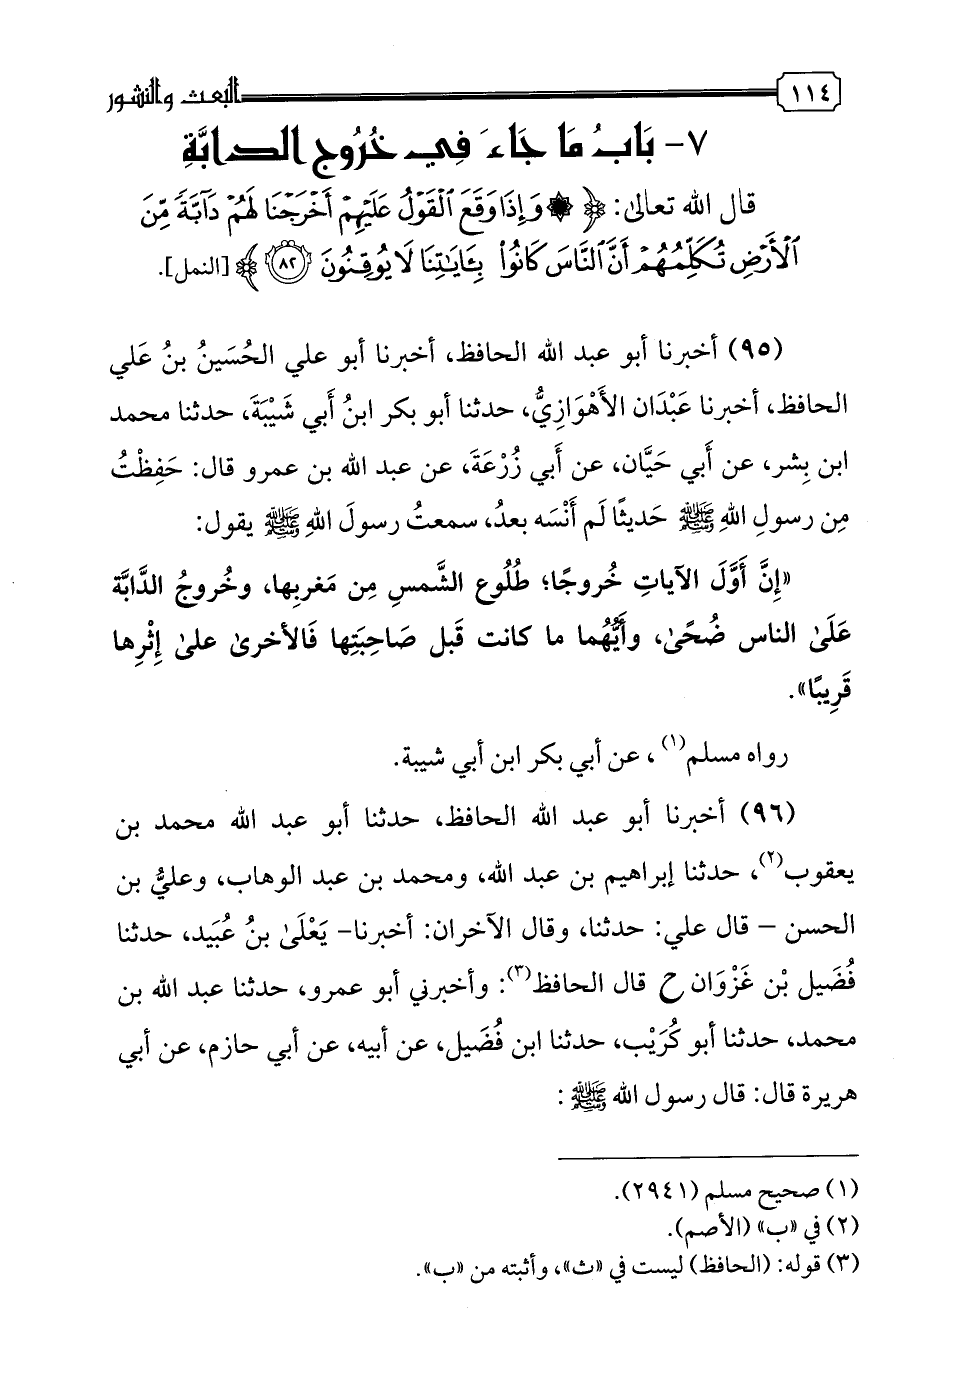 ١١٤ البعث والنشور
٧- بَابُ مَا جَاءَ فِي خُرُوجِ الدابَّةِ
قال الله تعالىٰ: ﴿۞ وَإِذَا وَقَعَ ٱلْقَوْلُ عَلَيْهِمْ أَخْرَجْنَا لَهُمْ دَآبَّةً مِّنَ
ٱلْأَرْضِ تُكَلِّمُهُمْ أَنَّ ٱلنَّاسَ كَانُوا۟ بِـَٔايَـٰتِنَا لَا يُوقِنُونَ ٨٢﴾ [النمل].
(٩٥) أخبرنا أبو عبد الله الحافظ، أخبرنا أبو علي الحُسَينُ بنُ عَلي
الحافظ، أخبرنا عَبْدَان الأَهْوَازِيُّ، حدثنا أبو بكر ابنُ أَبي شَيْبَةَ، حدثنا محمد
ابن بِشر، عن أَبي حَيَّان، عن أَبي زُرْعَةَ، عن عبد الله بن عمرو قال: حَفِظْتُ
مِن رسولِ اللهِ ﷺ حَديثًا لَم أَنْسَه بعدُ، سمعتُ رسولَ اللهِ ﷺ يقول:
«إِنَّ أَوَّلَ الآياتِ خُروجًا؛ طُلُوع الشَّمسِ مِن مَغربِها، وخُروجُ الدَّابَّة
عَلَىٰ الناس ضُحًىٰ، وأَيُّهُما ما كانت قَبل صَاحِبَتِها فَالأخرىٰ علىٰ إِثْرِها
قَرِيبًا».
رواه مسلم(١)، عن أبي بكر ابن أبي شيبة.
(٩٦) أخبرنا أبو عبد الله الحافظ، حدثنا أبو عبد الله محمد بن
يعقوب(٢)، حدثنا إبراهيم بن عبد الله، ومحمد بن عبد الوهاب، وعليُّ بن
الحسن – قال علي: حدثنا، وقال الآخران: أخبرنا– يَعْلَىٰ بنُ عُبَيد، حدثنا
فُضَيل بْن غَزْوَان ح قال الحافظ(٣): وأخبرني أبو عمرو، حدثنا عبد الله بن
محمد، حدثنا أبو كُرَيْب، حدثنا ابن فُضَيل، عن أبيه، عن أبي حازم، عن أبي
هريرة قال: قال رسول الله ﷺ :
(١) صحيح مسلم (٢٩٤١).
(٢) في «ب» (الأصم).
(٣) قوله: (الحافظ) ليست في «ث»، وأثبته من «ب».